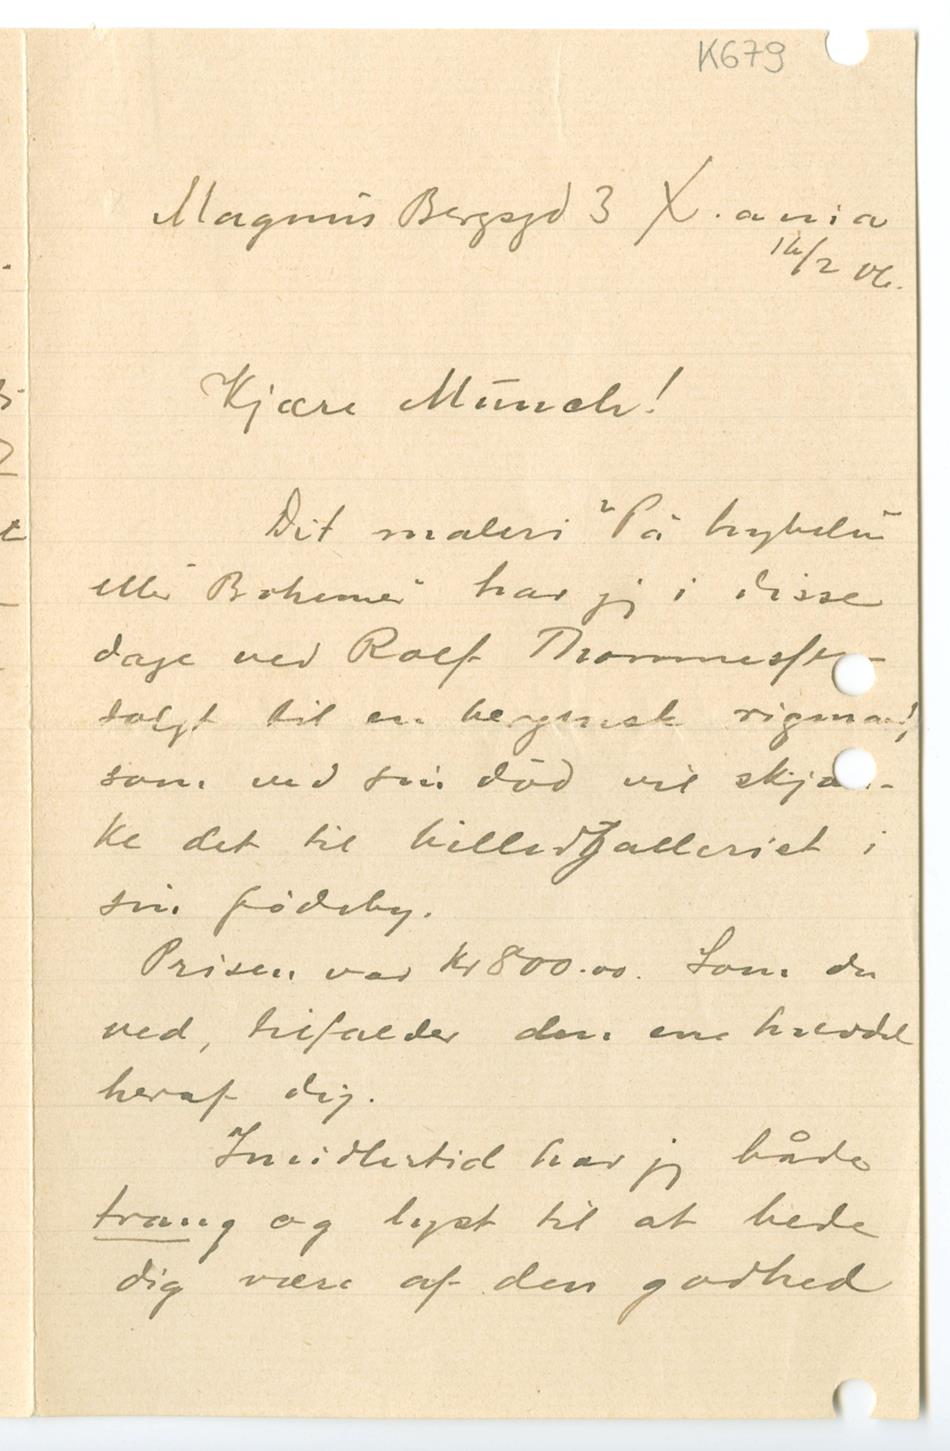 K679
Magnus Bergsgd 3 X.ania
16/2 06.
Kjære Munch!
Dit maleri "På hybelen
eller Bohemer" har jeg i disse
dage ved Rolf Thommesen
solgt til en bergensk rigmand,
som ved sin död vil skjæn-
ke det til billedgalleriet i
sin födeby.
Prisen var Kr 800.00. Som du
ved, tilfalder den ene halvdel
heraf dig.
Imidlertid har jeg både
trang og lyst til at bede
dig være af den godhed